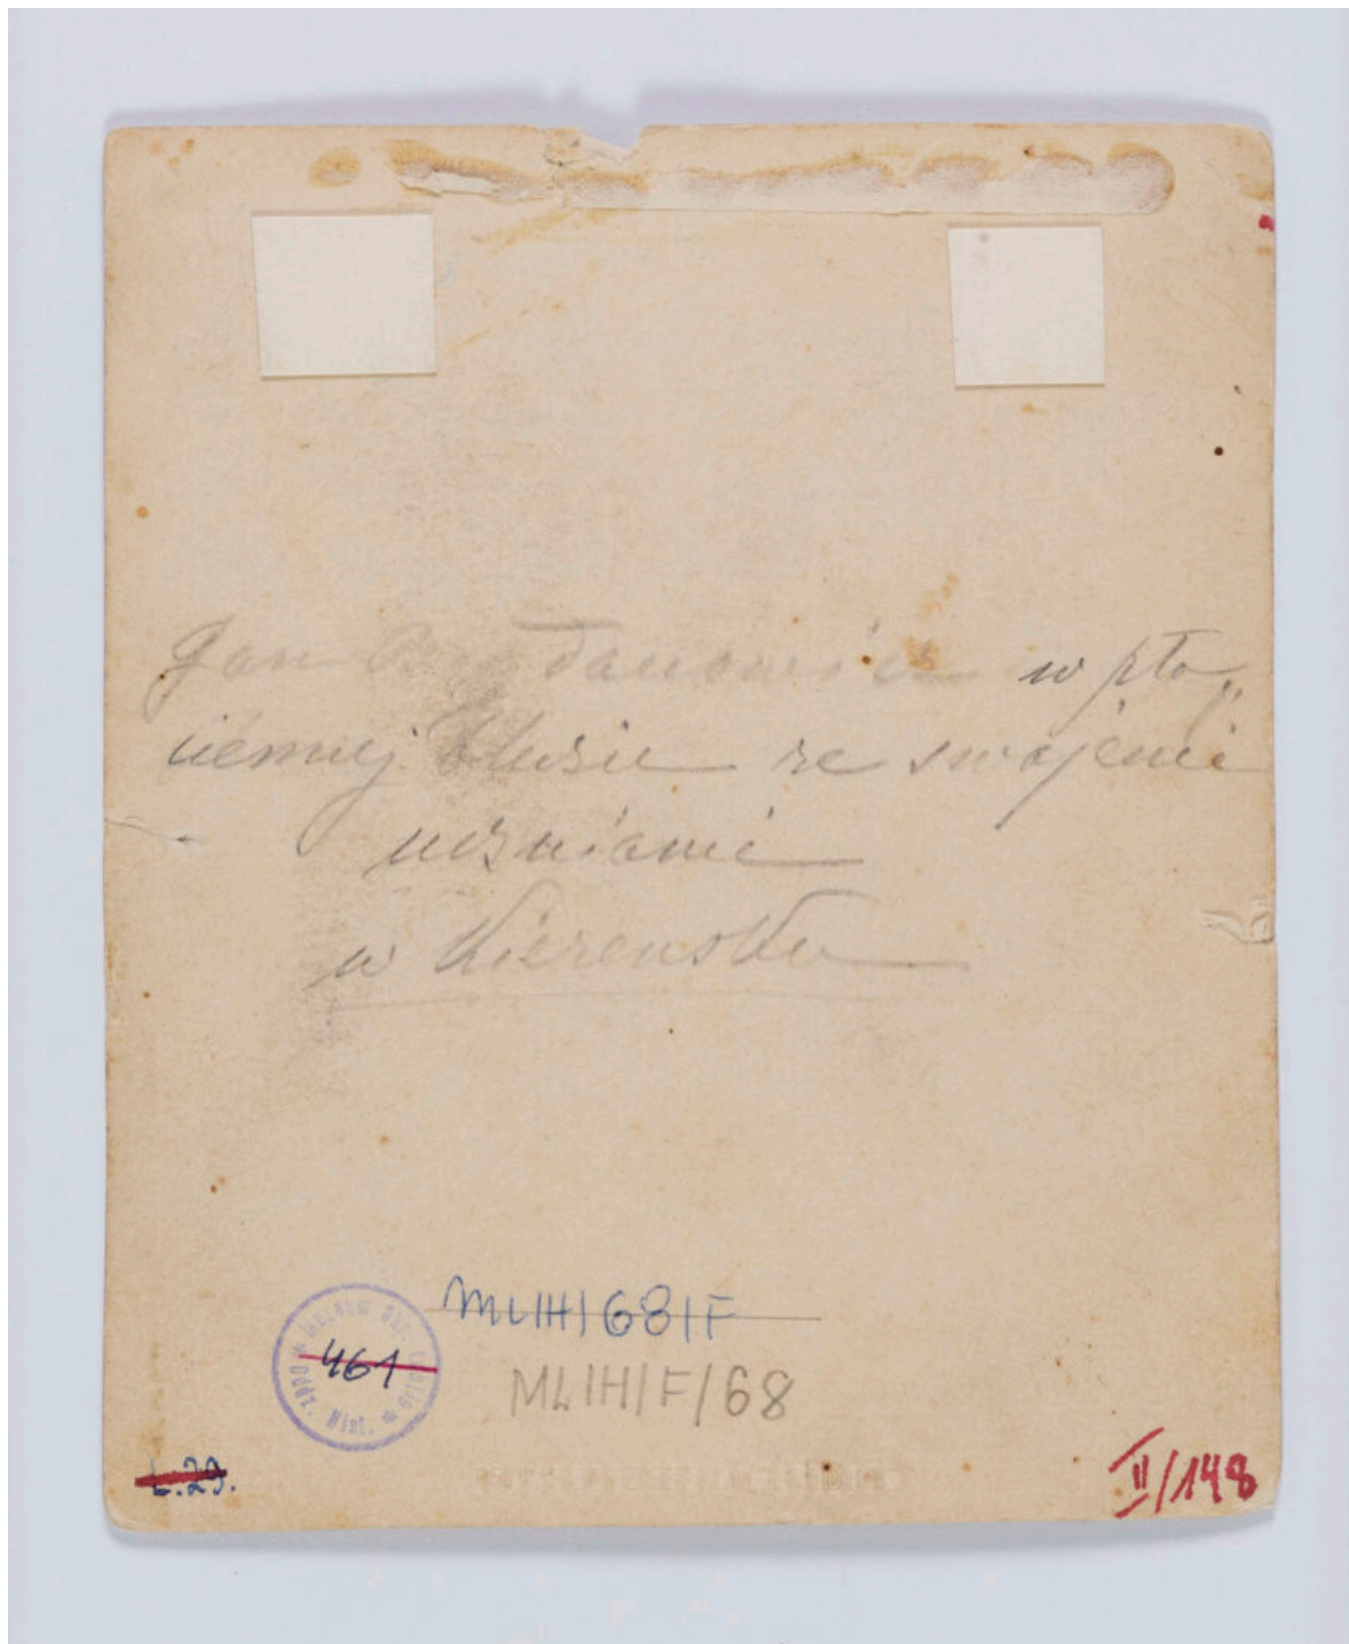 Jan Bogdanowicz w płó„
ciennej bluzie ze swojemi
uczniami
w Kierensku
MLIH168IF
461
Oddz. Hist.
MLIHIF/68
L.29.
II/148